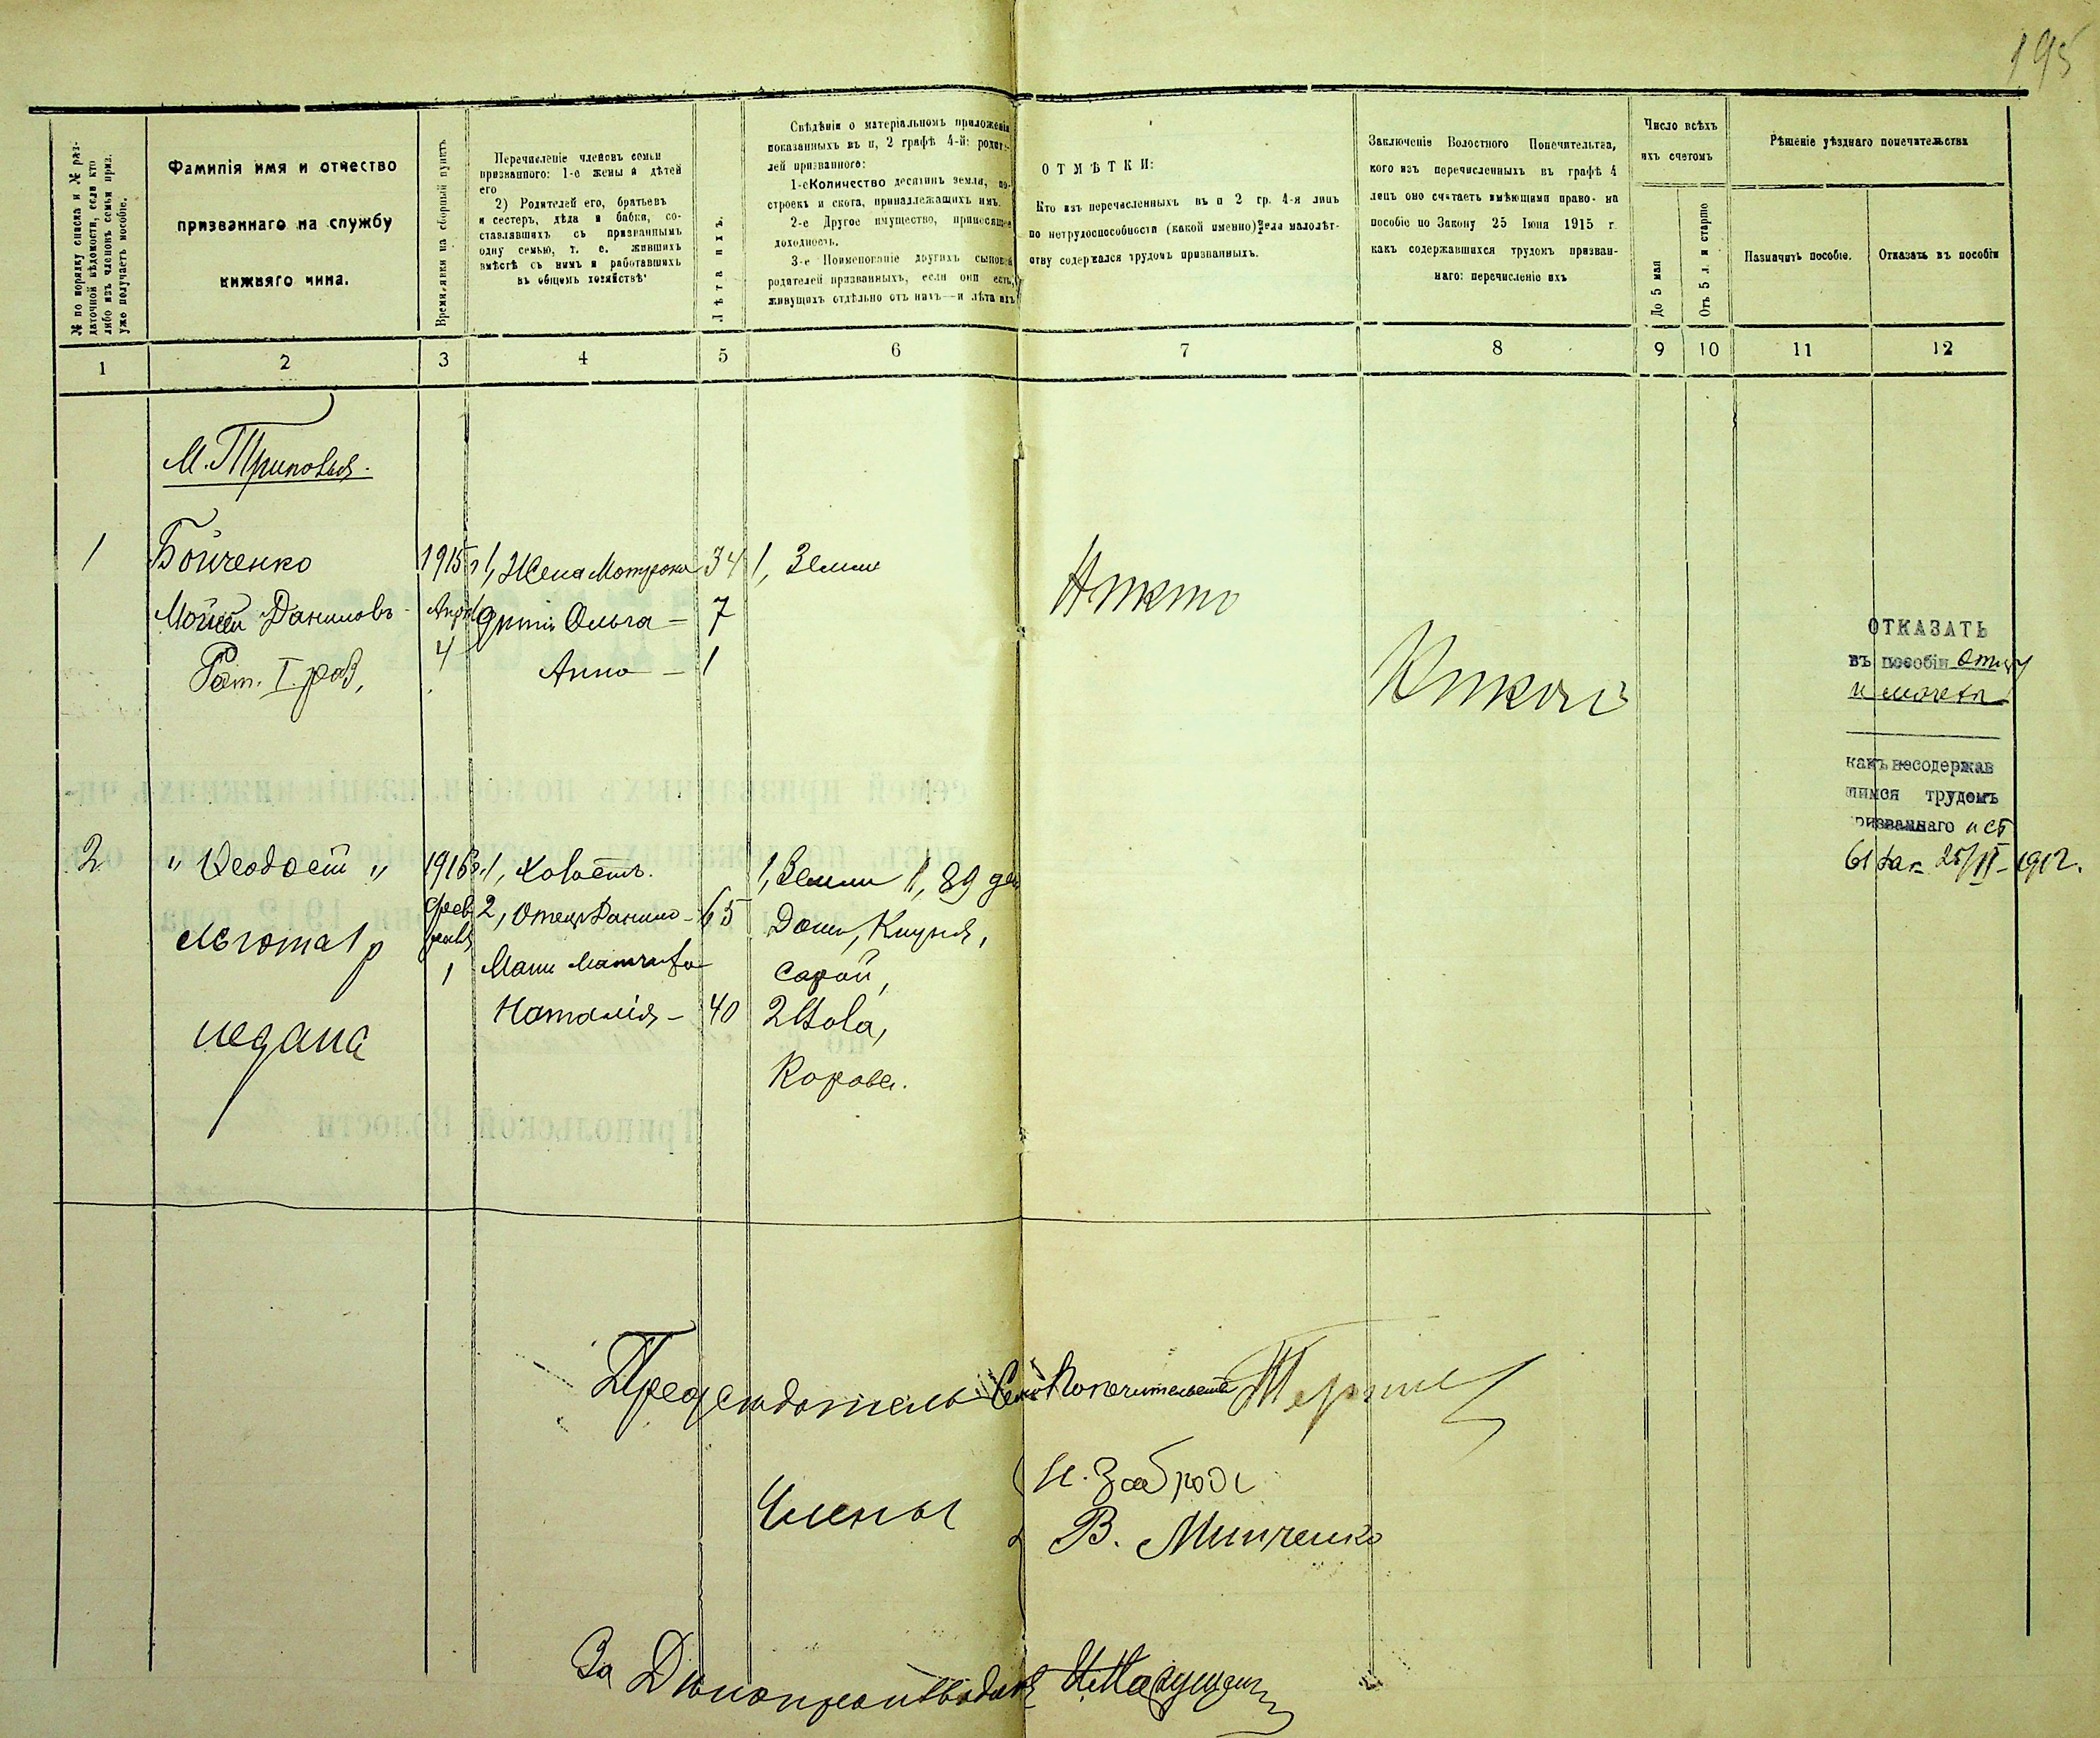 195
№ по порядку списка и № раз-
даточной вѣдомости, если кто
либо изъ членовъ семьи приз.
уже получаетъ пособіе.
Фамилія имя и отчество
призваннаго на службу
нижняго чина.
Время явки на сборный пунктъ
Перечисленіе членовъ семьи
призваннаго: 1-е жены и дѣтей
его
2) Родителей его, братьевъ
и сестеръ, дѣда и бабки, со-
ставлявшихъ съ призваннымъ
одну семью, т. е. жившихъ
вмѣстѣ съ нимъ и работавшихъ
въ общемъ хозяйствѣ
Лѣта ихъ.
Свѣдѣнія о матеріальномъ приложенія
показанныхъ въ п, 2 графѣ 4-й: родите-
лей призваннаго:
1-е Количество десятинъ земли, по-
строекъ и скота, принадлежащихъ имъ.
2-е Другое имущество, приносящее
доходность.
3-е Поименованіе другихъ сыновей
родителей призванныхъ, если они есть,
живущихъ отдѣльно отъ нихъ—и лѣта ихъ
ОТМѢТКИ:
Кто изъ перечисленныхъ въ п 2 гр. 4-я лицъ
по нетрудоспособности (какой именно) или малолѣт-
ству содержался трудомъ призванныхъ.
Заключеніе Волостного Попечительства,
кого изъ перечисленныхъ въ графѣ 4
лицъ оно считаетъ имѣющими право- на
пособіе по Закону 25 Іюня 1915 г
какъ содержавшихся трудомъ призван-
наго: перечисленіе ихъ
Число всѣхъ
ихъ счетомъ
До 5 мая
Отъ 5 л. и старше
Рѣшеніе уѣзднаго попечительства
Назначить пособіе.
Отказать въ пособіи
1 2 3 4 5 6 7 8 9 10 11 12
М. Триполья.
1 Бойченко 1915 г 1, Жена Мотрона 34 1, Земли
Мойсей Даниловъ дѣти Ольга — 7
Рат. I. раз. 4 Анна — 1
Никто
Никого
ОТКАЗАТЬ
въ пособіи отцу
и мачехѣ
какъ несодержав
шимся трудомъ
призваннаго
2 " Феодосій " 1916 г. 1, Холостъ. 1, Земли 1,89 дес
Февраля 2, Отецъ Данило — 65 Домъ, Клуня,
льгота 1 р 1 Мачиха сарай,
Наталія — 40 2 Вола,
недана Корова.
Предсѣдатель Сел. Попечительства
Члены
В. Минченко
За Дѣлопроизводителя